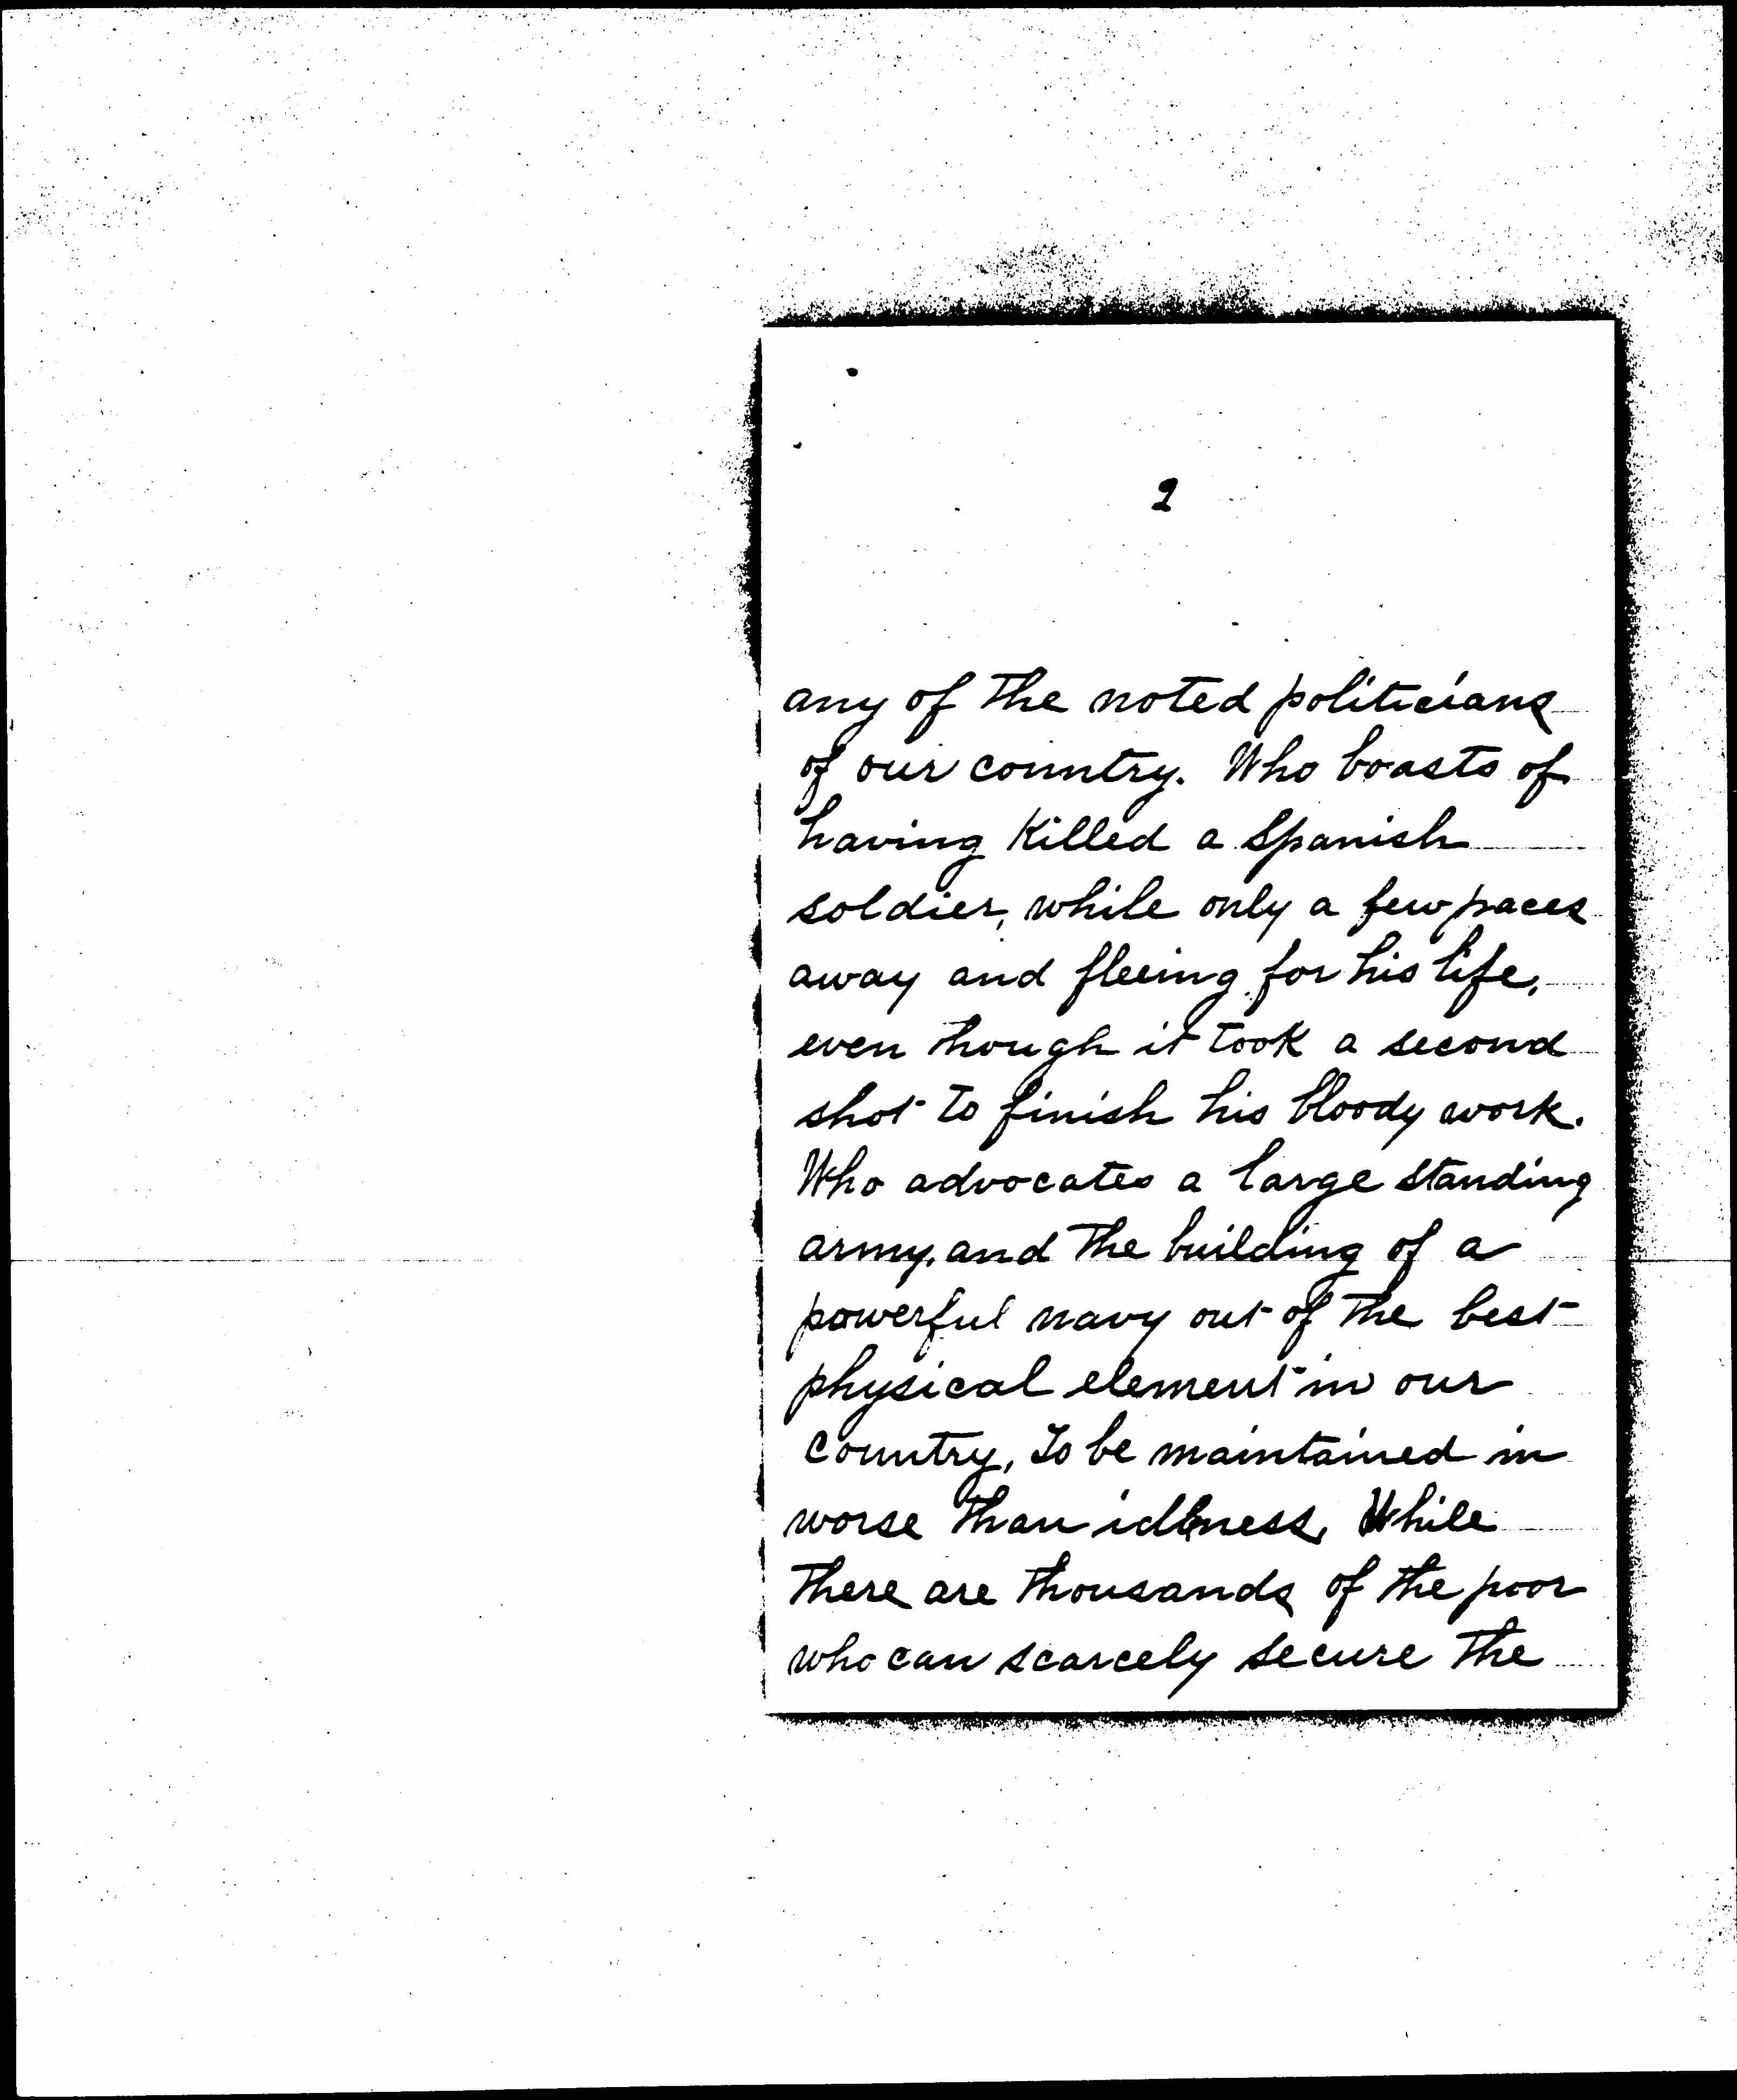 2
any of the noted politicians
of our country. Who boasts of
having killed a Spanish
soldier, while only a few paces
away and fleeing for his life,
even though it took a second
shot to finish his bloody work.
Who advocates a large standing
army, and the building of a
powerful navy out of the best
physical element in our
country, To be maintained in
worse than idleness, While
there are thousands of the poor
who can scarcely secure the